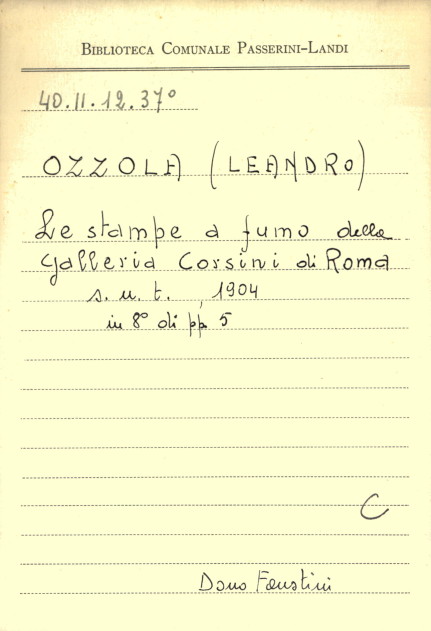 BIBLIOTECA COMUNALE PASSERINI-LANDI
40.II.12.37°
OZZOLA (LEANDRO)
Le stampe a fumo della
Galleria Corsini di Roma
s. n. t. , 1904
in 8° di pp. 5
C
Dono Faustini